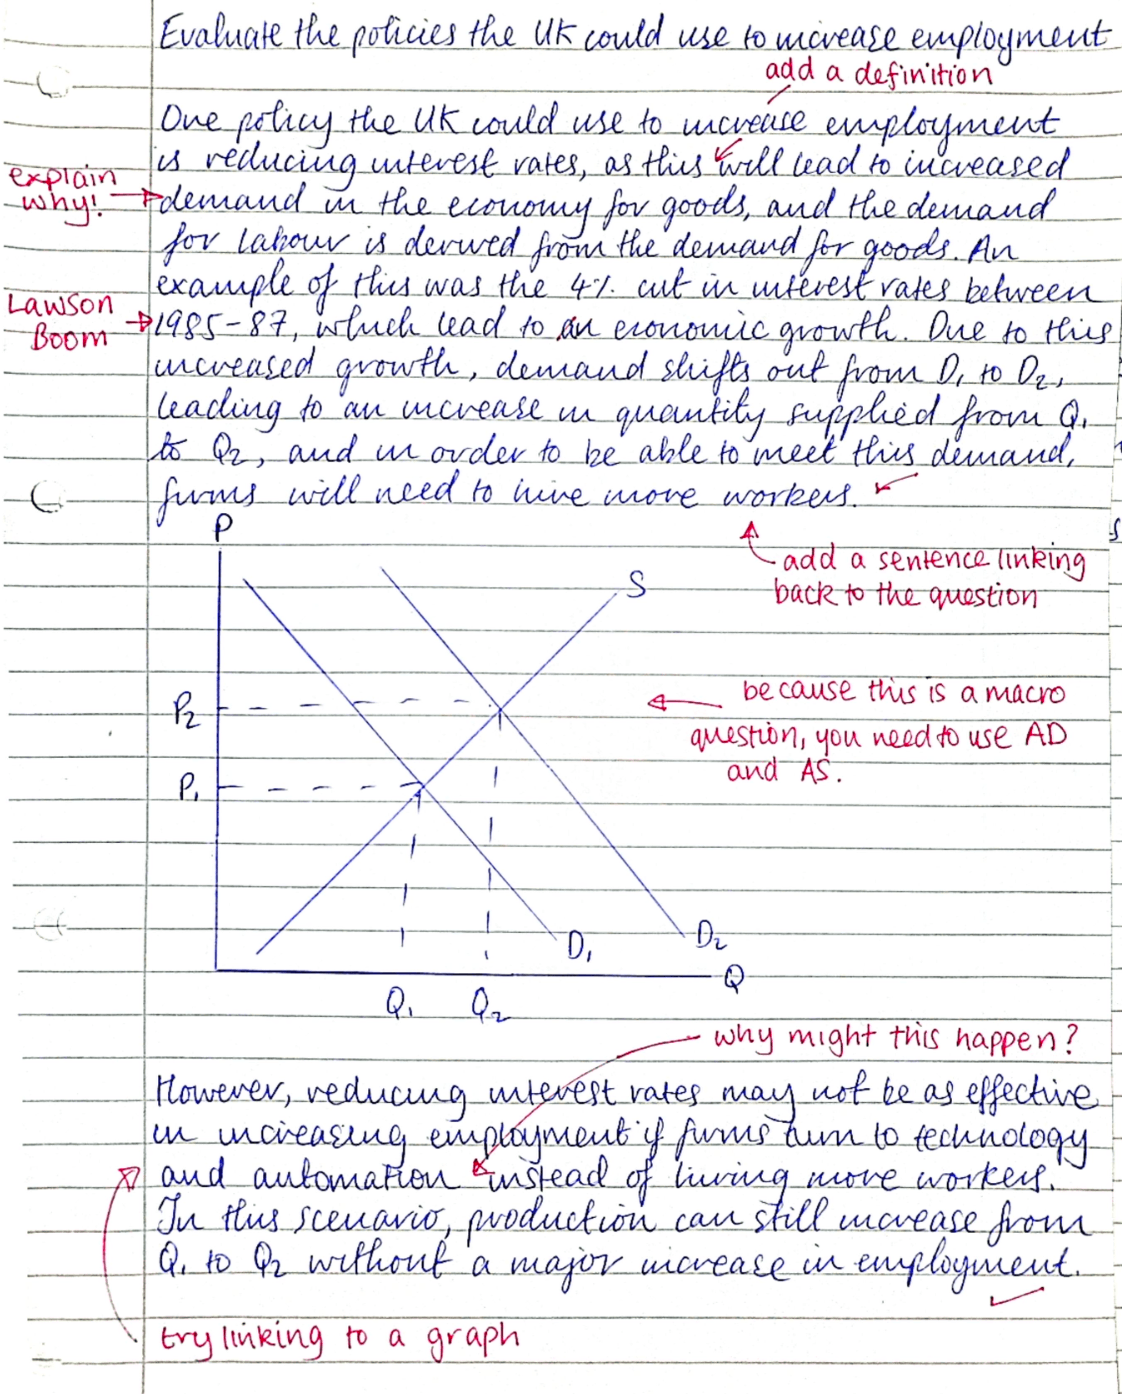 Evaluate the policies the UK could use to increase employment
add a definition
One policy the UK could use to increase employment
is reducing interest rates, as this will lead to increased
explain
why!
demand in the economy for goods, and the demand
for labour is derived from the demand for goods. An
example of this was the 4% cut in interest rates between
Lawson
Boom
1985-87, which lead to an economic growth. Due to this
increased growth, demand shifts out from D1 to D2,
leading to an increase in quantity supplied from Q1
to Q2, and in order to be able to meet this demand,
firms will need to hire more workers.
add a sentence linking
back to the question
P
S
P2
P1
because this is a macro
question, you need to use AD
and AS.
D1
D2
Q
Q1 Q2
why might this happen?
However, reducing interest rates may not be as effective
in increasing employment if firms turn to technology
and automation instead of hiring more workers.
In this scenario, production can still increase from
Q1 to Q2 without a major increase in employment.
try linking to a graph